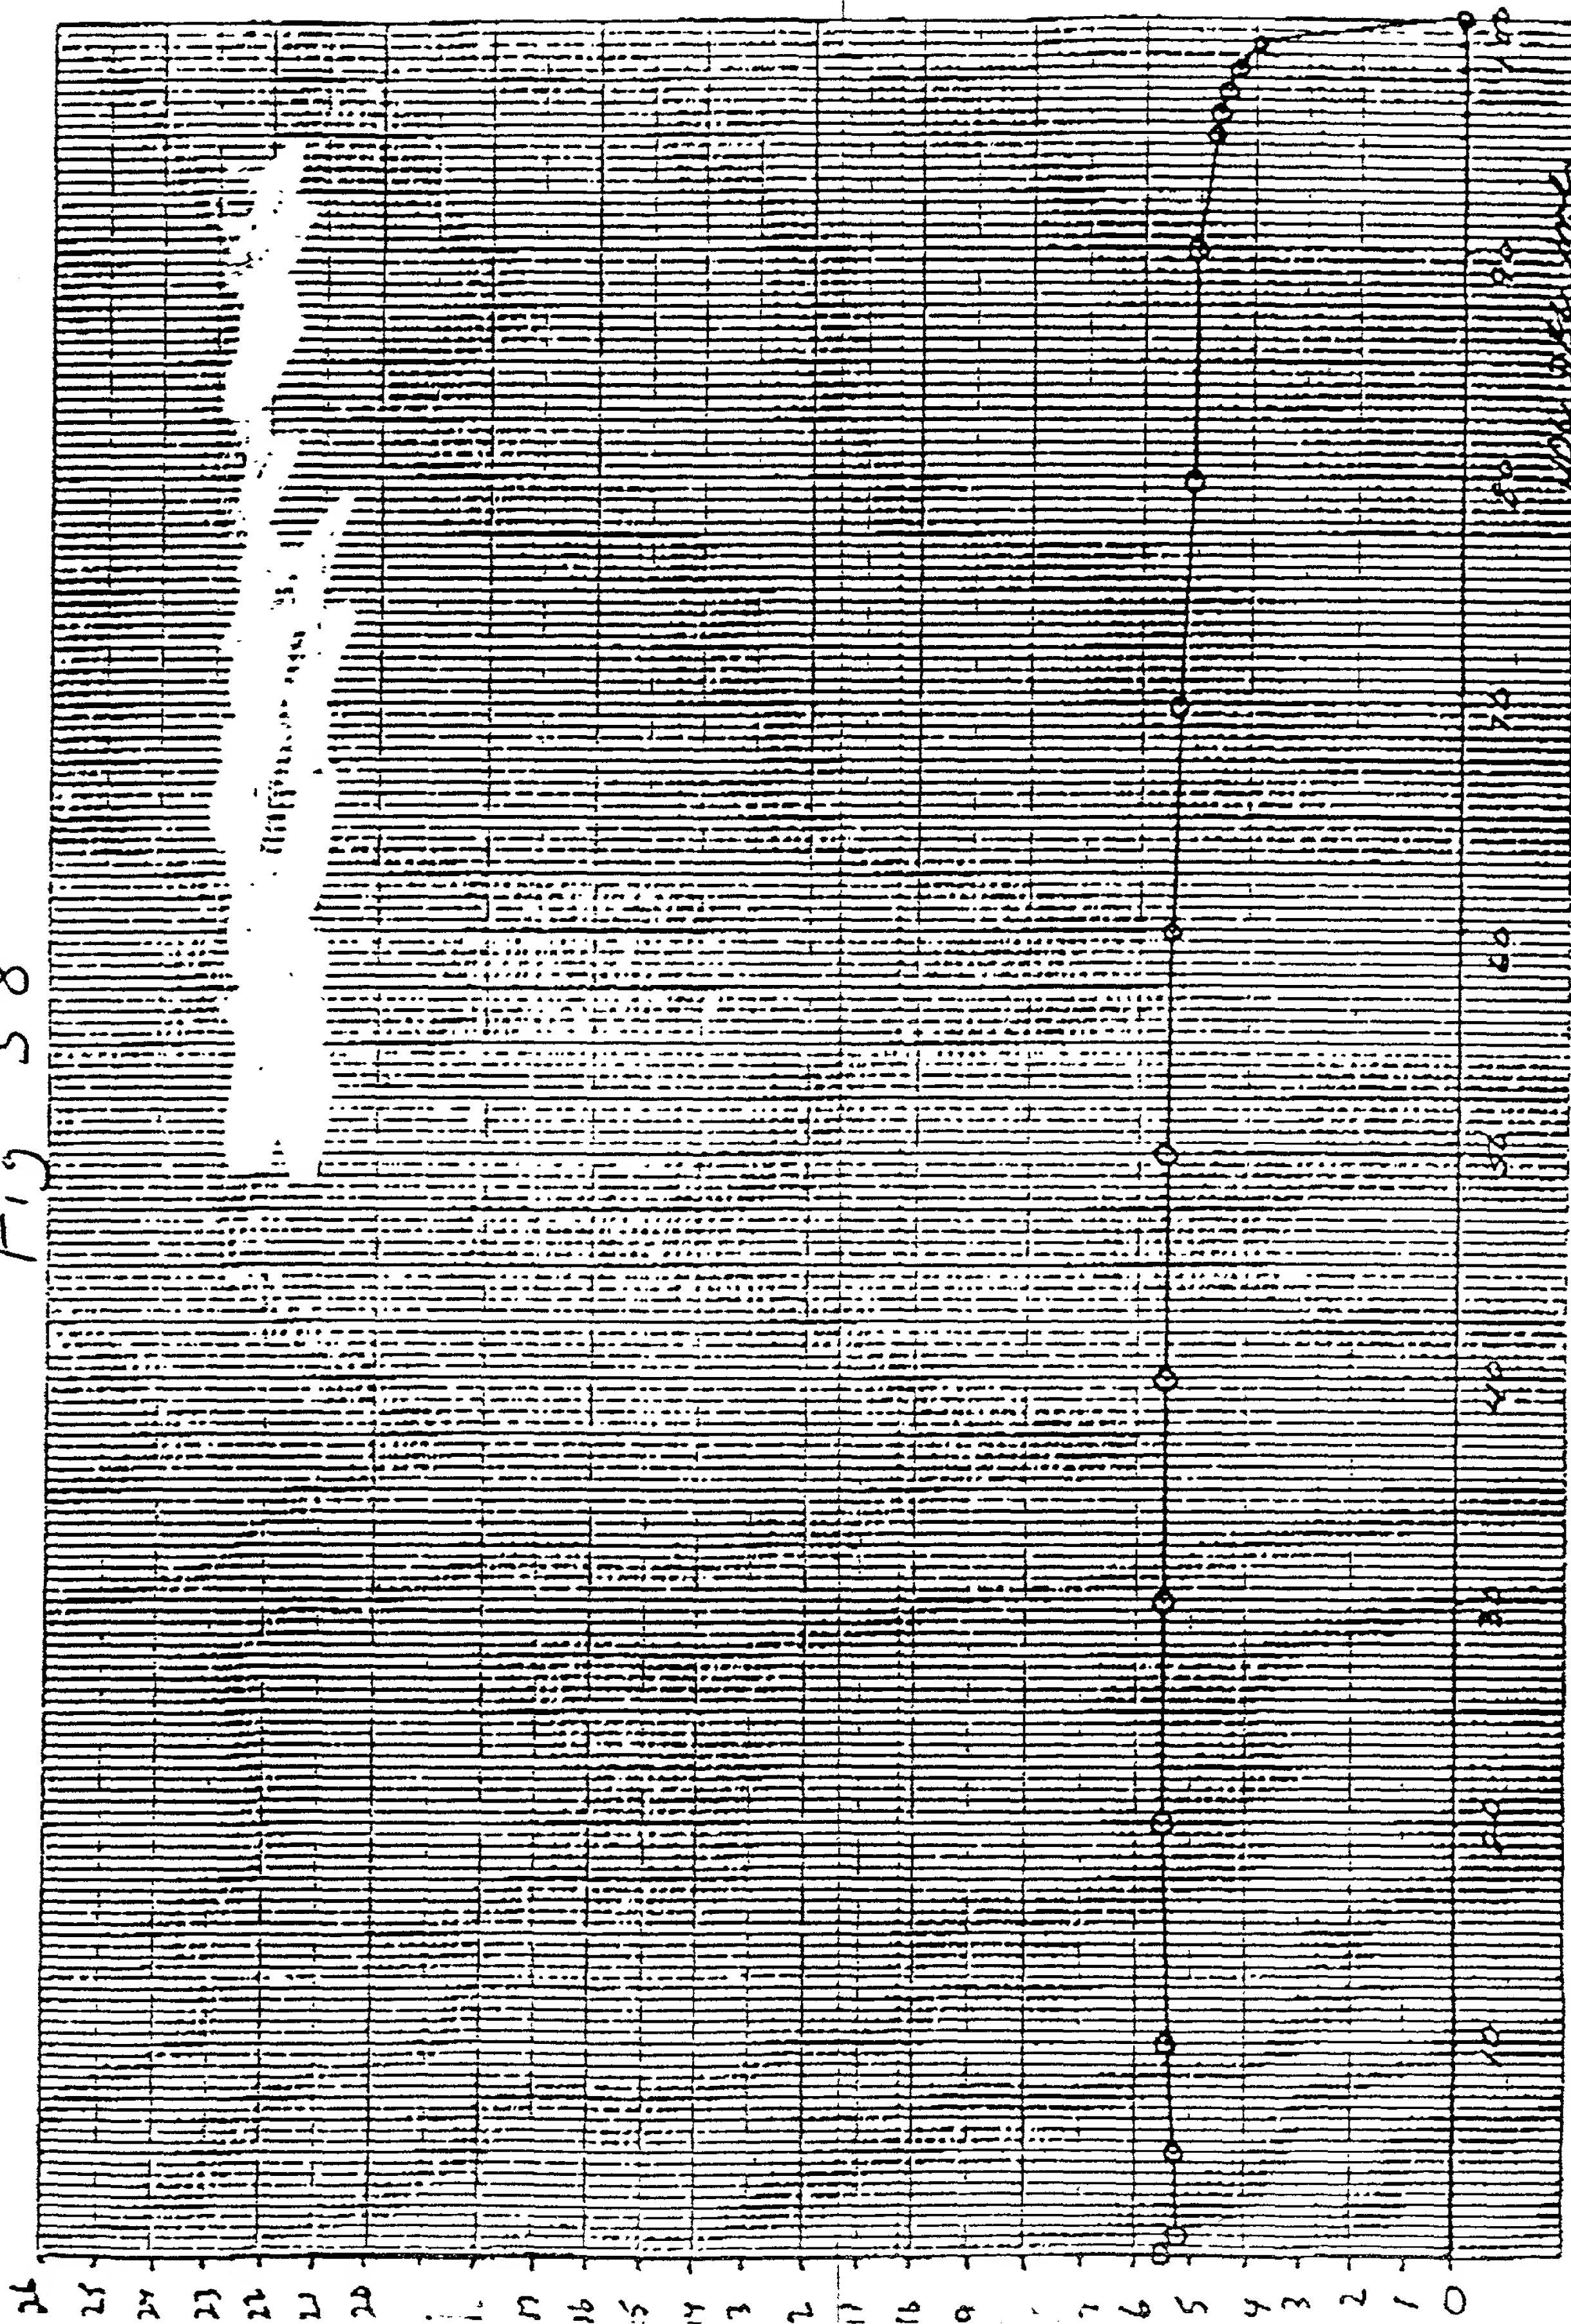 Fig 38
26
25
24
23
22
21
20
17
16
15
14
3
2
11
10
9
7
6
5
4
3
2
1
0
10
20
30
40
50
60
70
80
90
100